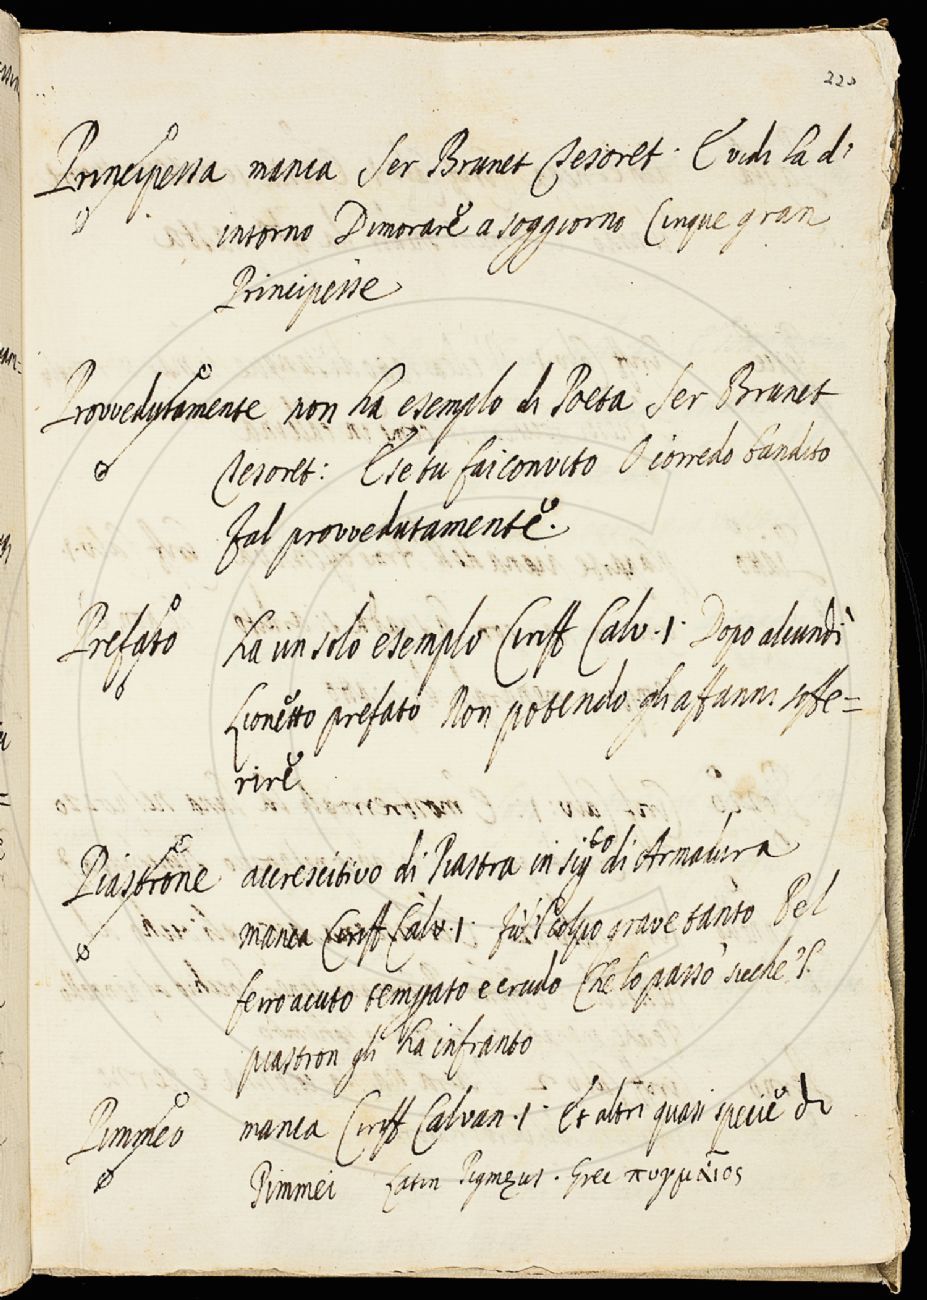 220
Principessa manca Ser Brunet Tesoret. E vidi la di
intorno Dimorare a soggiorno Cinque gran
Principesse
Provvedutamente non ha esemplo di Poeta Ser Brunet
Tesoret: E se tu fai convito O corredo bandito
Fal provvedutamente.
Prefato ha un solo esemplo Ciriff Calv. 1. Dopo alcun dì
Lionetto prefato Non potendo gli affanni soffe=
rire
Piastrone accrescitivo di Piastra in sig.to di Armadura
manca Ciriff Calv. 1. Fu 'l colpo grave tanto Pel
ferro acuto temprato e crudo Che lo passò sicche 'l
piastron gli ha infranto
Pimmeo manca Ciriff Calvan. 1. Et altri quasi specie di
Pimmei Latin Pigmęus. Grec πυγμαῖος